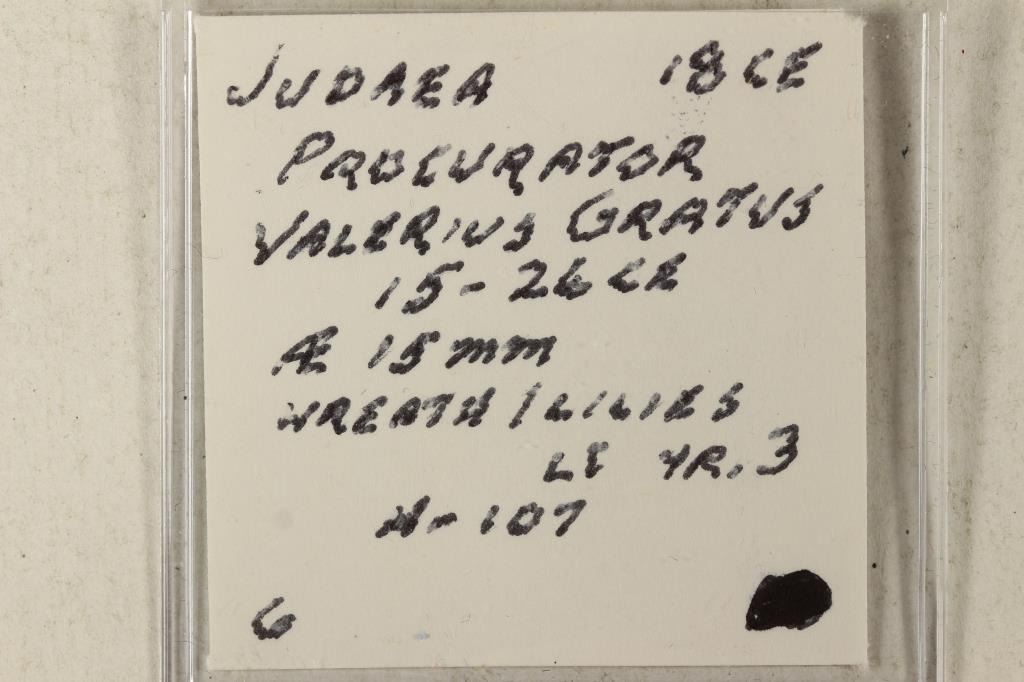 JUDAEA 18 CE
PROCURATOR
VALERIUS GRATUS
15-26 CE
Æ 15mm
WREATH / LILIES
LΓ YR. 3
H-107
6